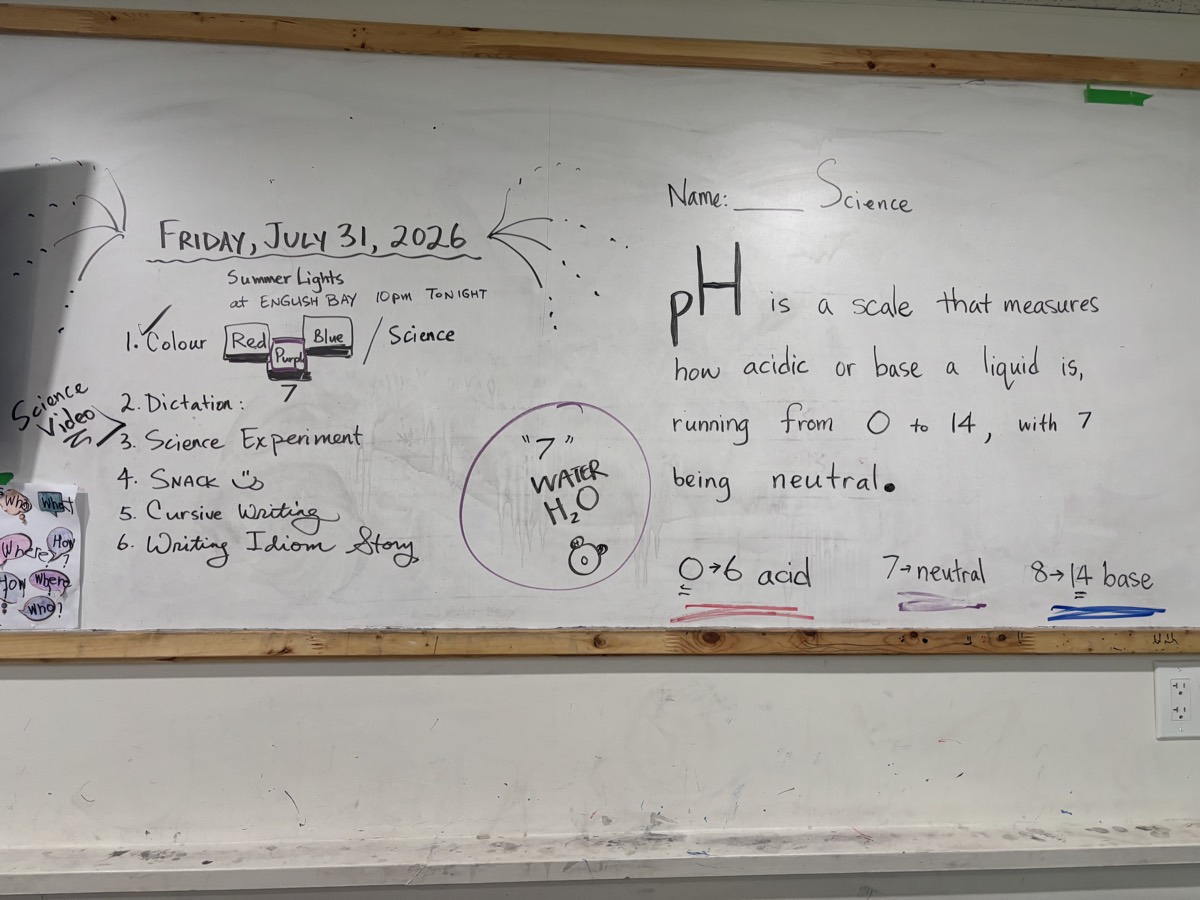 FRIDAY, JULY 31, 2026
Summer Lights
at ENGLISH BAY 10pm TONIGHT
1. Colour Red Purpl Blue / Science
7
Science
Video
2. Dictation:
3. Science Experiment
4. SNACK
5. Cursive Writing
6. Writing Idiom Story
Who What
Where? How?
How Where
Who?
"7"
WATER
H₂O
O
Name: ____ Science
pH is a scale that measures
how acidic or base a liquid is,
running from 0 to 14, with 7
being neutral.
0→6 acid 7→neutral 8→14 base